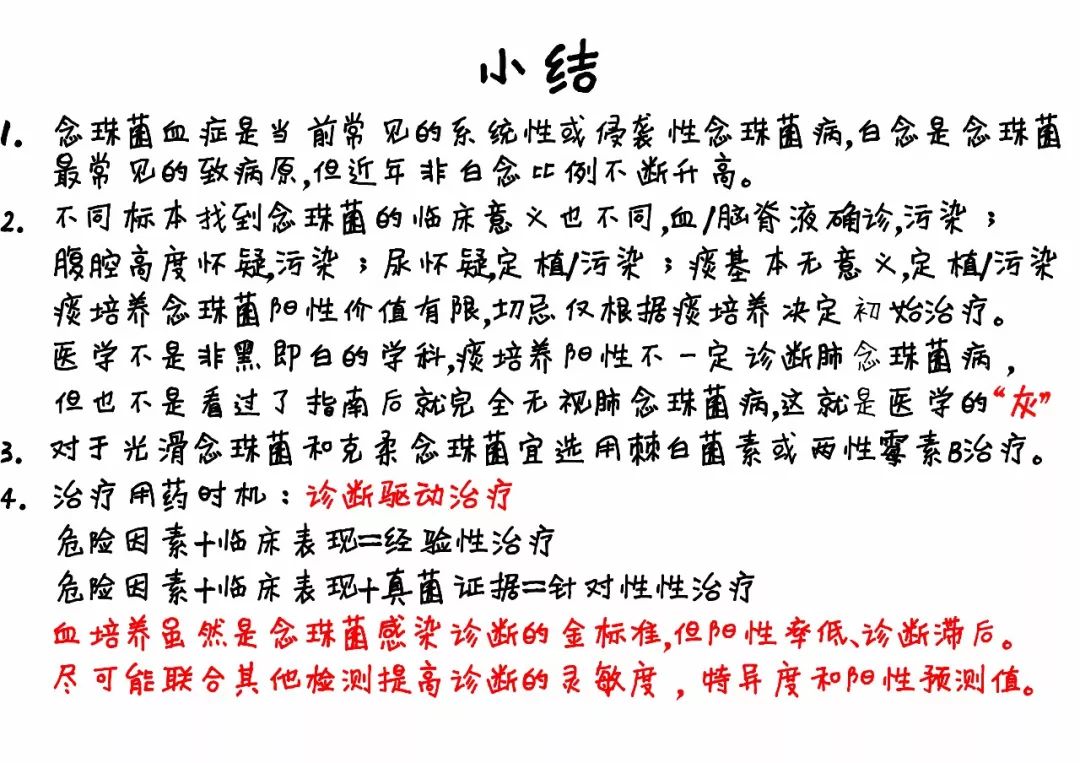 小结
1. 念珠菌血症是当前常见的系统性或侵袭性念珠菌病,白念是念珠菌
最常见的致病原,但近年非白念比例不断升高。
2. 不同标本找到念珠菌的临床意义也不同,血/脑脊液确诊,污染；
腹腔高度怀疑,污染；尿怀疑,定植/污染；痰基本无意义,定植/污染
痰培养念珠菌阳性价值有限,切忌仅根据痰培养决定初始治疗。
医学不是非黑即白的学科,痰培养阳性不一定诊断肺念珠菌病，
但也不是看过了指南后就完全无视肺念珠菌病,这就是医学的“灰”
3. 对于光滑念珠菌和克柔念珠菌宜选用棘白菌素或两性霉素B治疗。
4. 治疗用药时机：诊断驱动治疗
危险因素+临床表现=经验性治疗
危险因素+临床表现+真菌证据=针对性性治疗
血培养虽然是念珠菌感染诊断的金标准,但阳性率低、诊断滞后。
尽可能联合其他检测提高诊断的灵敏度，特异度和阳性预测值。